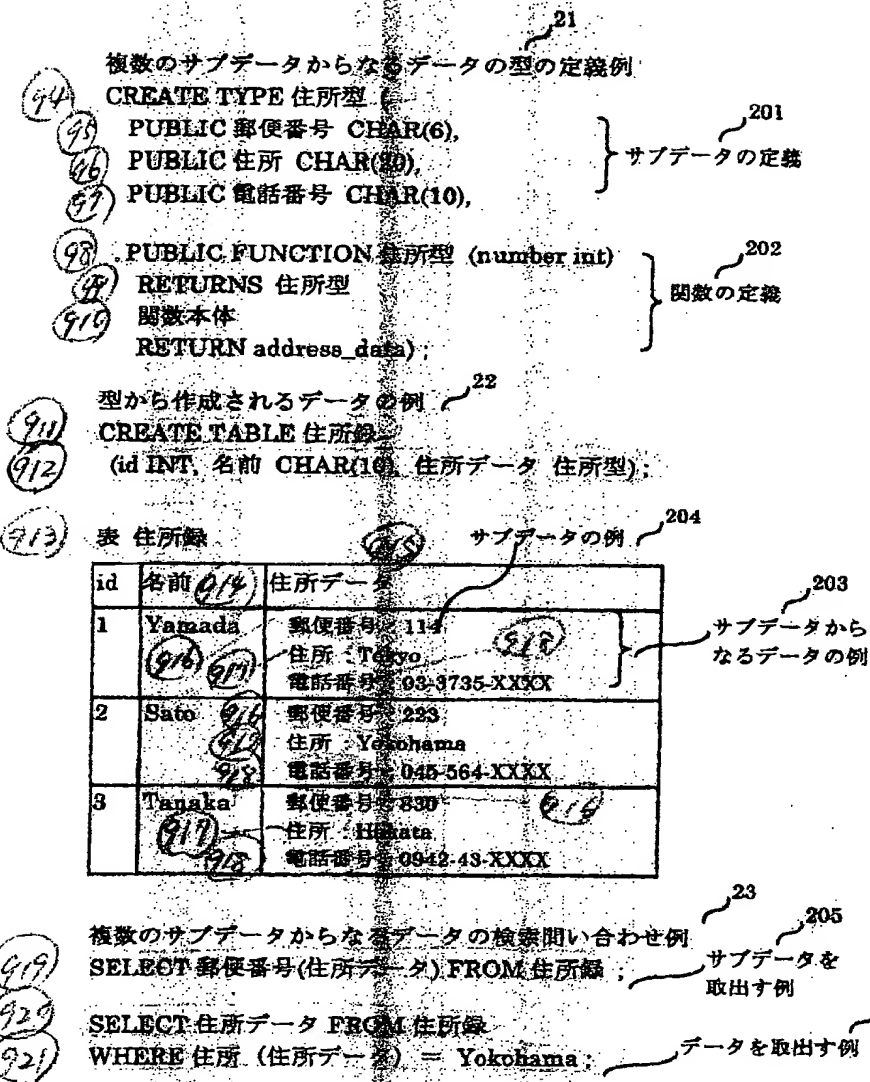 21
複数のサブデータからなるデータの型の定義例
94 CREATE TYPE 住所型 (
95 PUBLIC 郵便番号 CHAR(6),
96 PUBLIC 住所 CHAR(20),
97 PUBLIC 電話番号 CHAR(10),
201
サブデータの定義
98 PUBLIC FUNCTION 住所型 (number int)
99 RETURNS 住所型
910 関数本体
RETURN address_data);
202
関数の定義
型から作成されるデータの例 22
911 CREATE TABLE 住所録
912 (id INT, 名前 CHAR(10), 住所データ 住所型);
913 表 住所録
915
サブデータの例 204
id 名前 914 住所データ
1 Yamada 郵便番号:114
916 917 住所:Tokyo 918
電話番号:03-3735-XXXX
203
サブデータから
なるデータの例
2 Sato 916 郵便番号:223
917 住所:Yokohama
918 電話番号:045-564-XXXX
3 Tanaka 郵便番号:830 916
917 住所:Hakata
918 電話番号:0942-43-XXXX
23
複数のサブデータからなるデータの検索問い合わせ例
919 SELECT 郵便番号(住所データ) FROM 住所録 ;
205
サブデータを
取出す例
920 SELECT 住所データ FROM 住所録
921 WHERE 住所 (住所データ) = Yokohama ;
データを取出す例